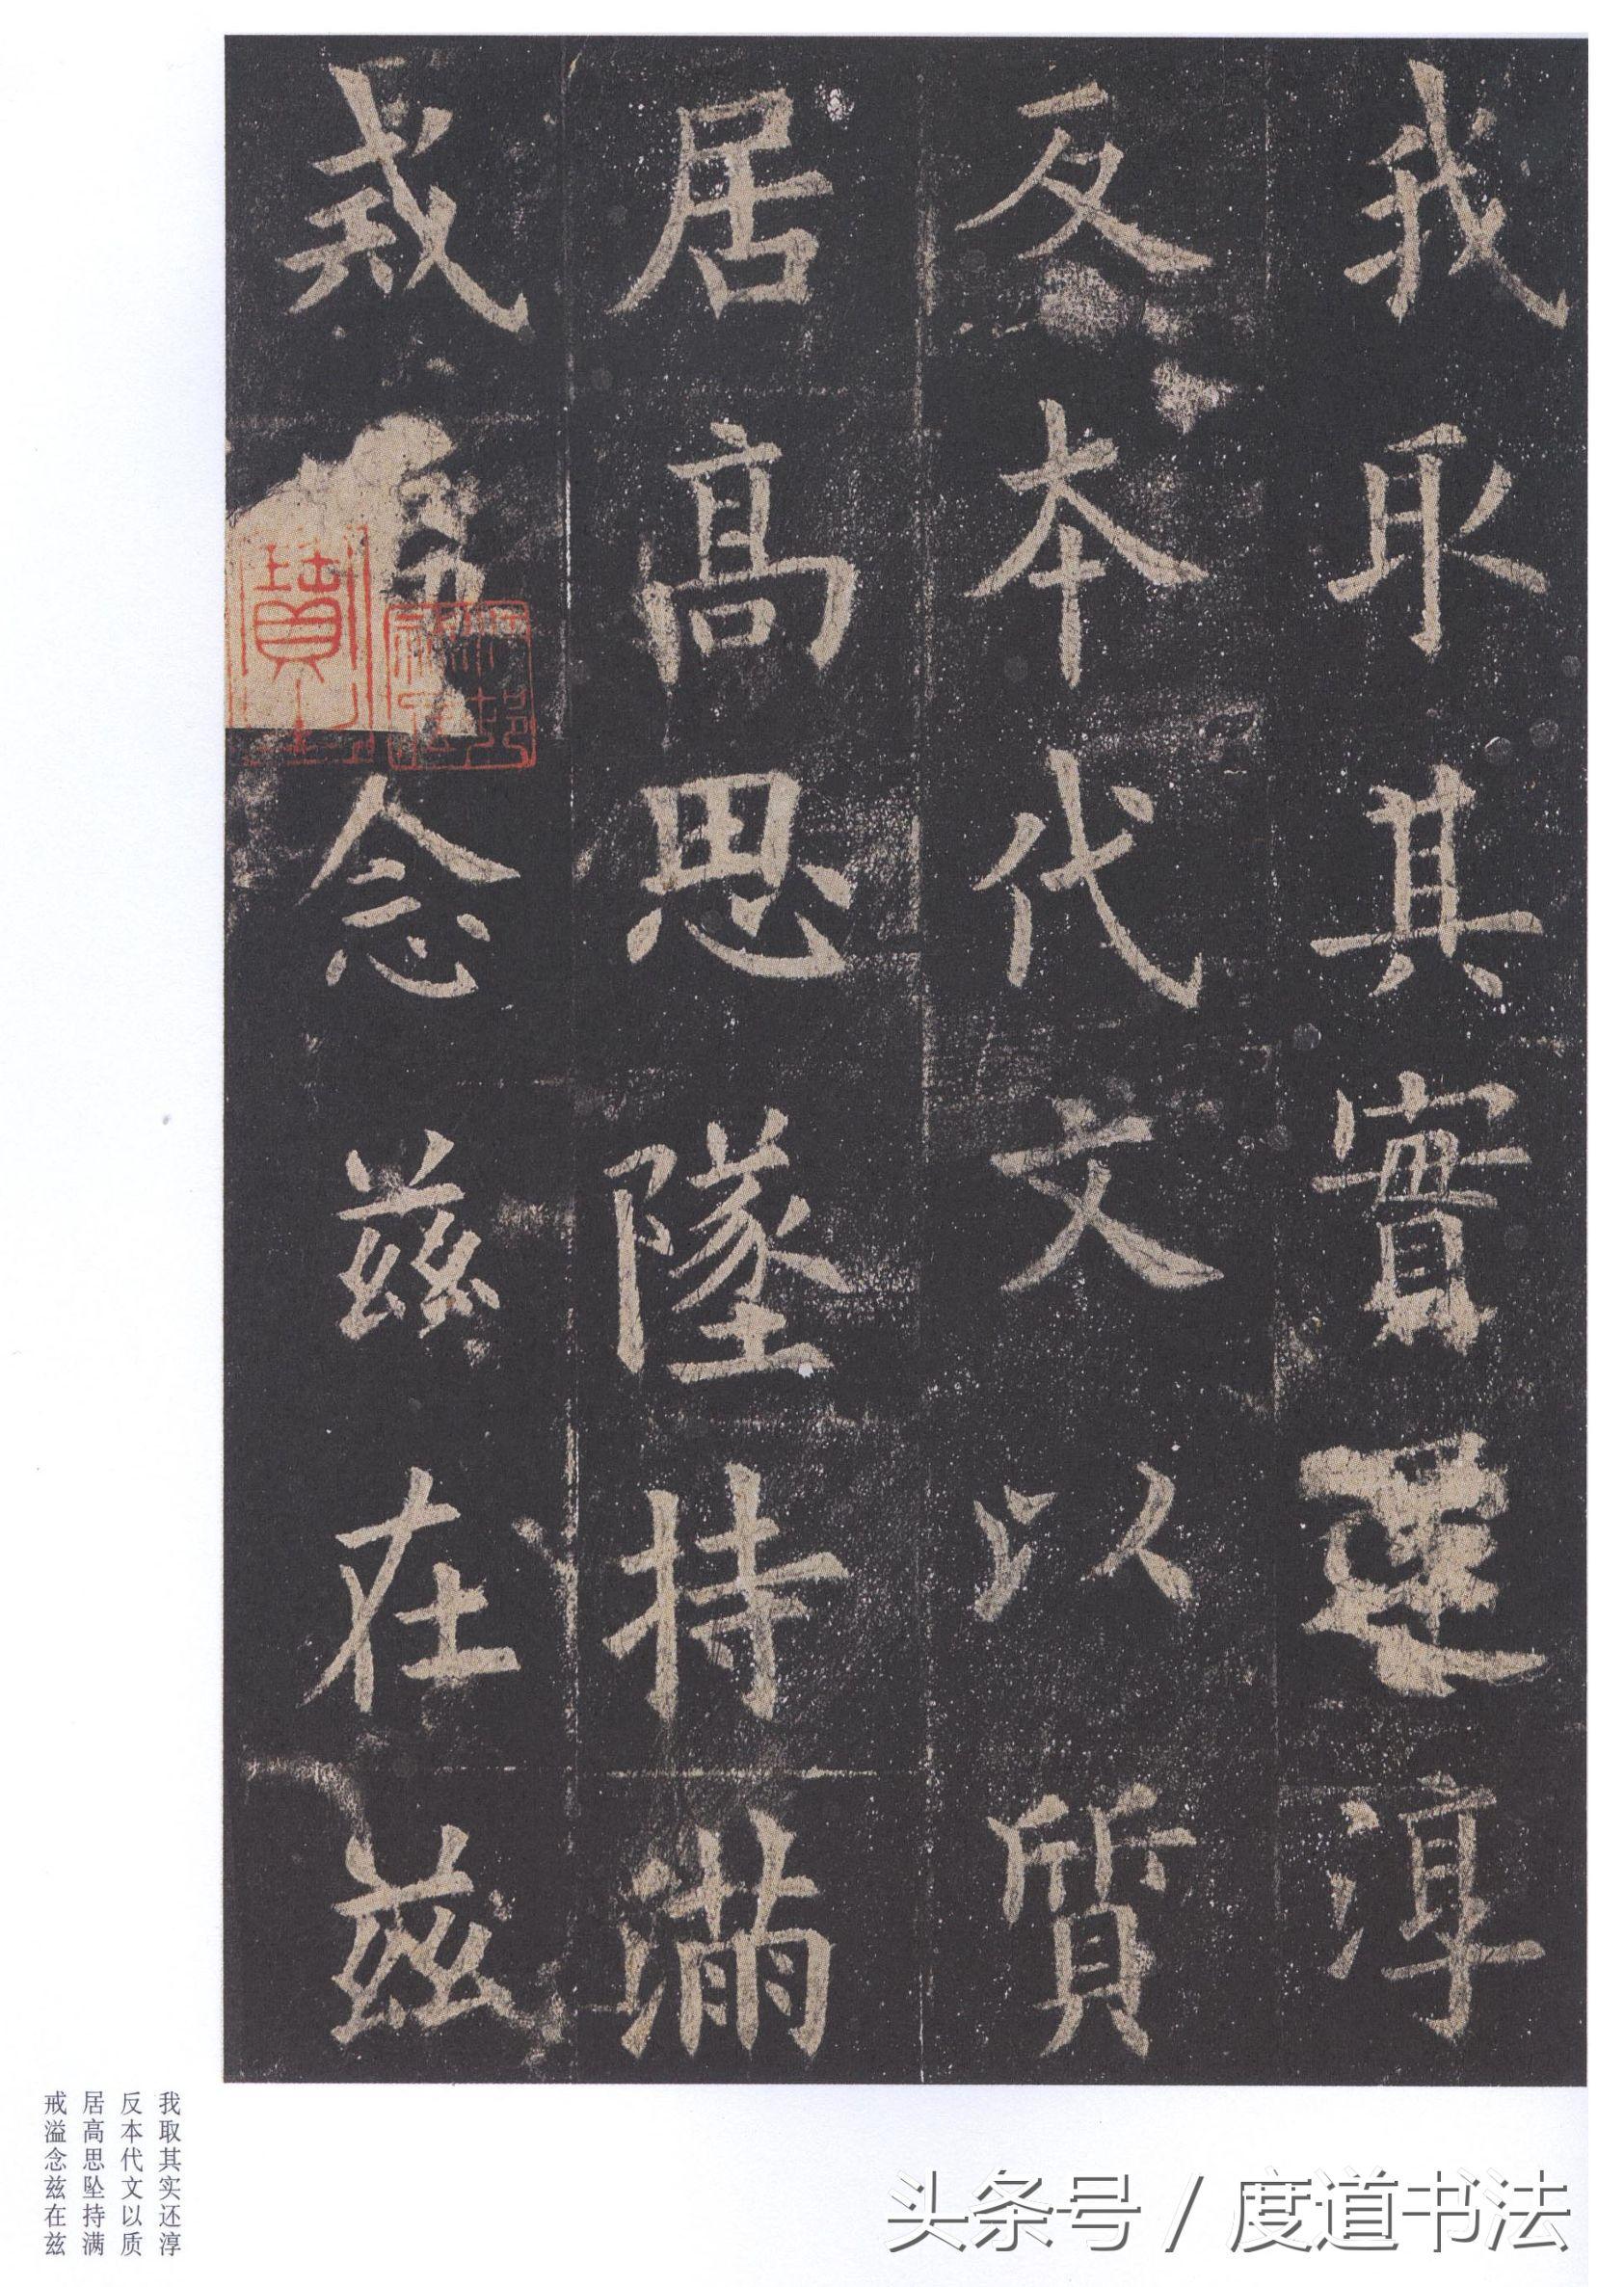 我取其實還淳
反本代文以質
居高思墜持滿
戒念茲在茲
我取其实还淳
反本代文以质
居高思坠持满
戒溢念兹在兹
头条号 / 度道书法